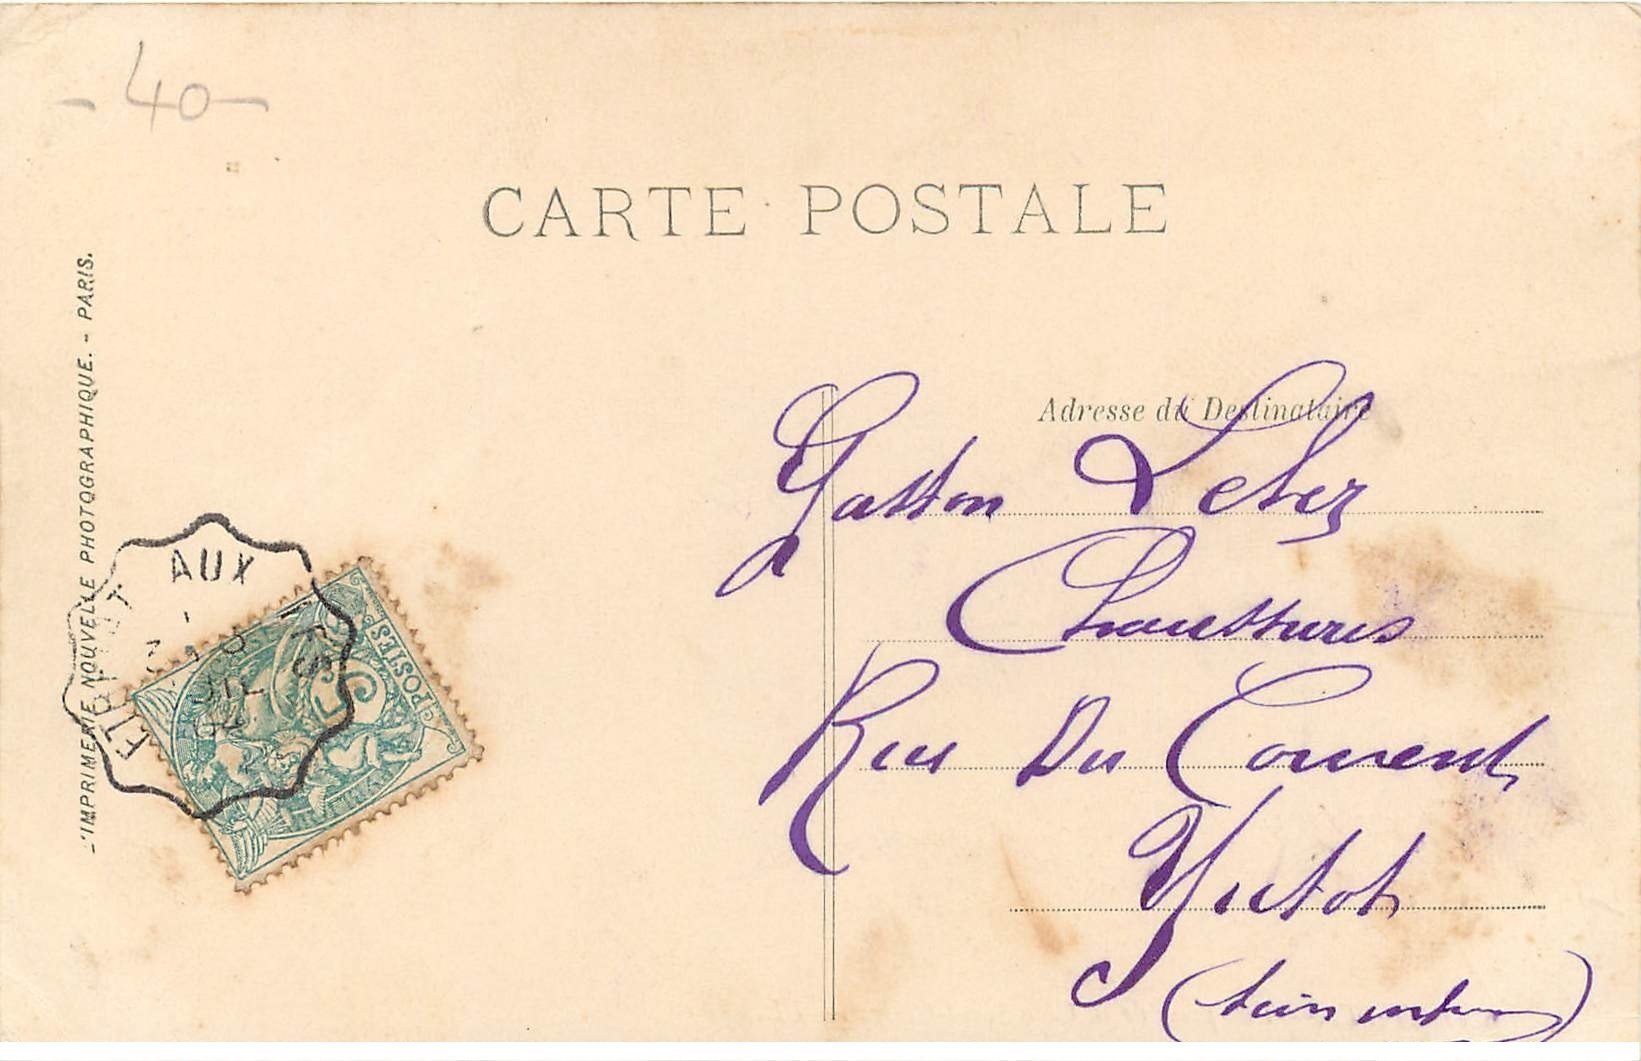 - 40 -
CARTE POSTALE
L'IMPRIMERIE NOUVELLE PHOTOGRAPHIQUE. - PARIS.
Adresse du Destinataire
Gaston
Chaussures
Rue Du Couvent
Yvetot
AUX
POSTES
5